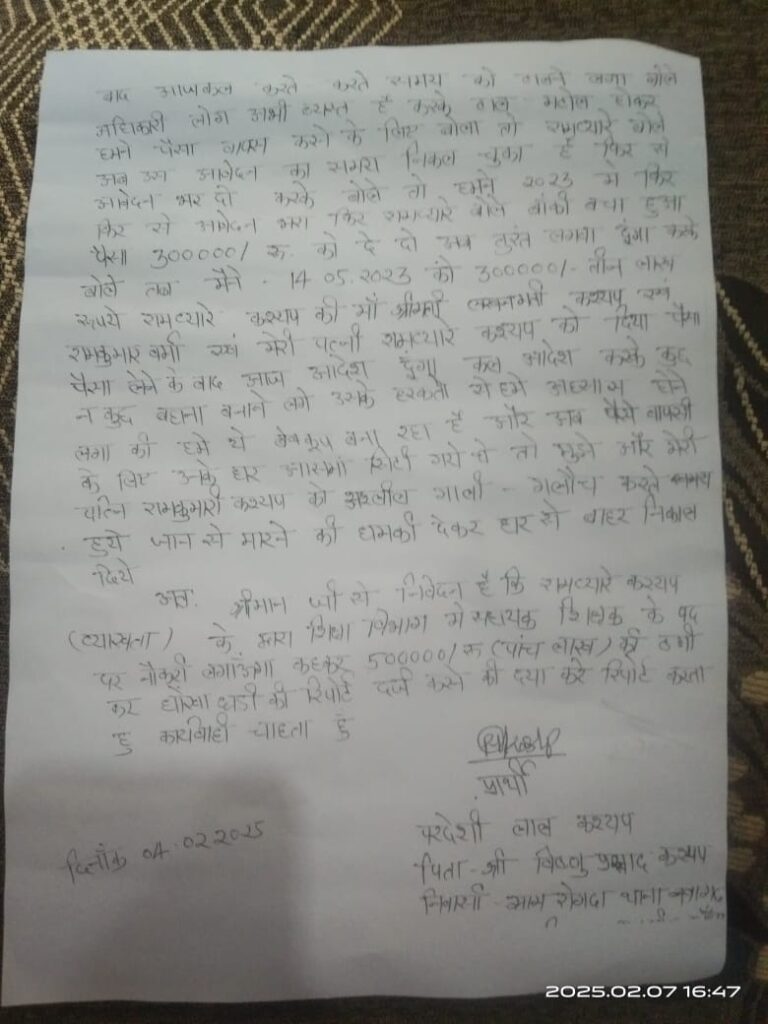 बाद आजकल करते करते समय को टालने लगा बोले
अधिकारी लोग अभी व्यस्त है करके टाल मटोल होकर
हमने पैसा वापस करने के लिए बोला तो रामप्यारे बोले
अब उस आवेदन का समय निकल चुका है फिर से
आवेदन भर दो करके बोले तो हमने 2023 मे फिर
फिर से आवेदन भरा फिर रामप्यारे बोले बांकी बचा हुआ
पैसा 300000/ रू. को दे दो अब तुरंत लगवा दुंगा करके
बोले तब मैने 14.05.2023 को 300000/- तीन लाख
रूपये रामप्यारे कश्यप की माँ श्रीमती कश्यप एवं
रामकुमार वर्मा एवं मेरी पत्नी रामप्यारे कश्यप को दिया पैसा
पैसा लेने के बाद आज आदेश दुंगा कल आदेश करके कुछ
न कुछ बहाना बनाने लगे उसके हरकतो से हमे अभ्यास होने
लगा की हमे ये बेवकूप बना रहा है और अब पैसे वापसी
के लिए उनके घर गये थे तो मुझे और मेरी
पत्नि रामकुमारी कश्यप को अश्लील गाली - गलौच करते समय
हुये जान से मारने की धमकी देकर घर से बाहर निकाल
दिये
अतः श्रीमान जी से निवेदन है कि रामप्यारे कश्यप
(व्याख्याता) के द्वारा शिक्षा विभाग मे सहायक शिक्षक के पद
पर नौकरी लगाऊंगा कहकर 500000/रू (पांच लाख) की ठगी
कर धोखा धडी की रिपोर्ट दर्ज करने की दया करे रिपोर्ट करता
हु कार्यवाही चाहता हुं
प्रार्थी
परदेशी लाल कश्यप
दिनाँक 04.02.2025
पिता - श्री विष्णु प्रसाद कश्यप
निवासी - ग्राम रोगदा थाना
2025.02.07 16:47